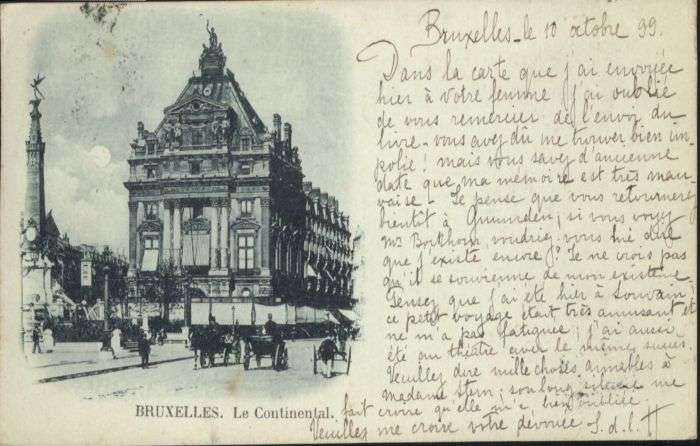 Bruxelles - le 10 octobre 99.
Dans la carte que j'ai envoyée
hier à votre femme j'ai oublié
de vous remercier de l'envoi du
livre - vous avez dû me trouver bien im-
polie! mais vous savez d'ancienne
date que ma mémoire est très mau-
vaise - Je pense que vous retournerez
bientôt à Gmunden; si vous voyez
Mr voudriez vous lui dire
que j'existe encore? Je ne crois pas
qu'il se souvienne de mon existence
Pensez que j'ai été hier à Louvain,
ce petit voyage était très amusant et
ne m'a pas fatiguée; j'ai aussi
été au théâtre avec le même succès.
Veuillez dire mille choses aimables à
madame Stern; son long silence me
fait croire qu'elle m'a bien oubliée.
Veuillez me croire votre dévouée S. d. l. H
BRUXELLES. Le Continental.